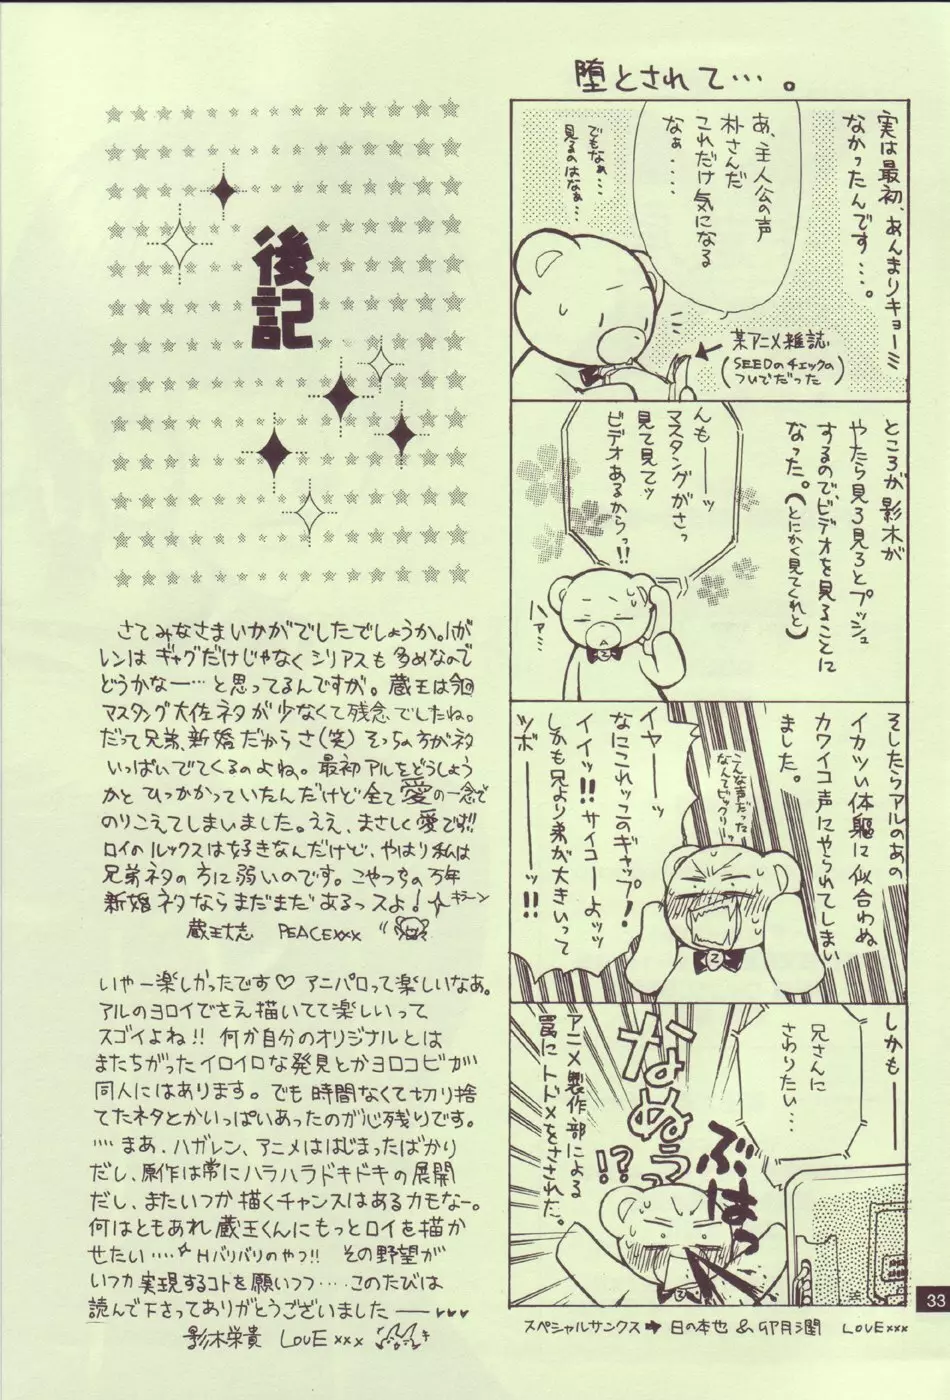 堕とされて…。
実は最初、あんまりキョーミ
なかったんです…。
あ、主人公の声
朴さんだ
これだけ気になる
なぁ・・・・
でもなぁ…
見るのはなぁ…
某アニメ雑誌
(SEEDのチェックの
ついでだった)
ところが影木が
やたら見ろ見ろとプッシュ
するので、ビデオを見ることに
なった。(とにかく見てくれと)
んも――ッ
マスタングがさっ
見て見てッ
ビデオあるからっ!!
ハァ…
そしたらアルのあの
イカツい体躯に似合わぬ
カワイコ声にやられてしまい
ました。
こんな声だった
なんてビックリーッ
イヤ――ッ
なにこれッこのギャップ!
イイッ!!サイコーよッッ
しかも兄より弟が大きいって
ツボ――ッ!!
しかも――
兄さんに
さわりたい…
なぬぅっ
!?
ぶはっ
アニメ製作部による
罠にトドメをさされた。
スペシャルサンクス➡日の本也&卯月潤 LOVExxx
33
後記
さてみなさまいかがでしたでしょうか。ハガ
レンはギャグだけじゃなくシリアスも多めなので
どうかなー…と思ってるんですが。蔵王は今回
マスタング大佐ネタが少なくて残念でしたね。
だって兄弟、新婚だからさ(笑)そっちの方がネタ
いっぱいでてくるのよね。最初アルをどうしよう
かとひっかかっていたんだけど全て愛の一念で
のりこえてしまいました。ええ、まさしく愛です!!
ロイのルックスは好きなんだけど、やはり私は
兄弟ネタの方に弱いのです。こやつらの万年
新婚ネタならまだまだあるっスよ!キラーン
蔵王大志 PEACExxx
いやー楽しかったです♡アニパロって楽しいなあ。
アルのヨロイでさえ描いてて楽しいって
スゴイよね!!何か自分のオリジナルとは
またちがったイロイロな発見とかヨロコビが
同人にはあります。でも時間なくて切り捨
てたネタとかいっぱいあったのが心残りです。
・・・・まあ、ハガレン、アニメははじまったばかり
だし、原作は常にハラハラドキドキの展開
だし、またいつか描くチャンスはあるカモなー。
何はともあれ蔵王くんにもっとロイを描か
せたい・・・・☆Hバリバリのやつ!! その野望が
いつか実現するコトを願いつつ・・・・このたびは
読んで下さってありがとうございました――♥♥♥
影木栄貴 LOVExxx